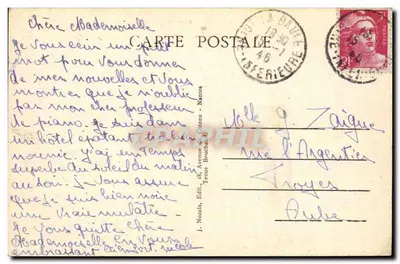 Chère Mademoiselle
Je vous écris un petit
mot pour vous donner
de mes nouvelles et vous
montrer que je n'oublie
pas mon cher professeur
de piano. Je suis dans
un hôtel
J'ai un temps
superbe du soleil du matin
au soir. Je vous assure
que je suis bien noire
une vraie mulâtre.
Je vous quitte chère
Mademoiselle en vous
embrassant bien fort. Nicole
CARTE POSTALE
LA BAULE
INFERIEURE
46
J. Nozais, Edit., 18, Avenue - Nantes
Melle G Zaigue
rue l'Argentier
Troyes
Aube